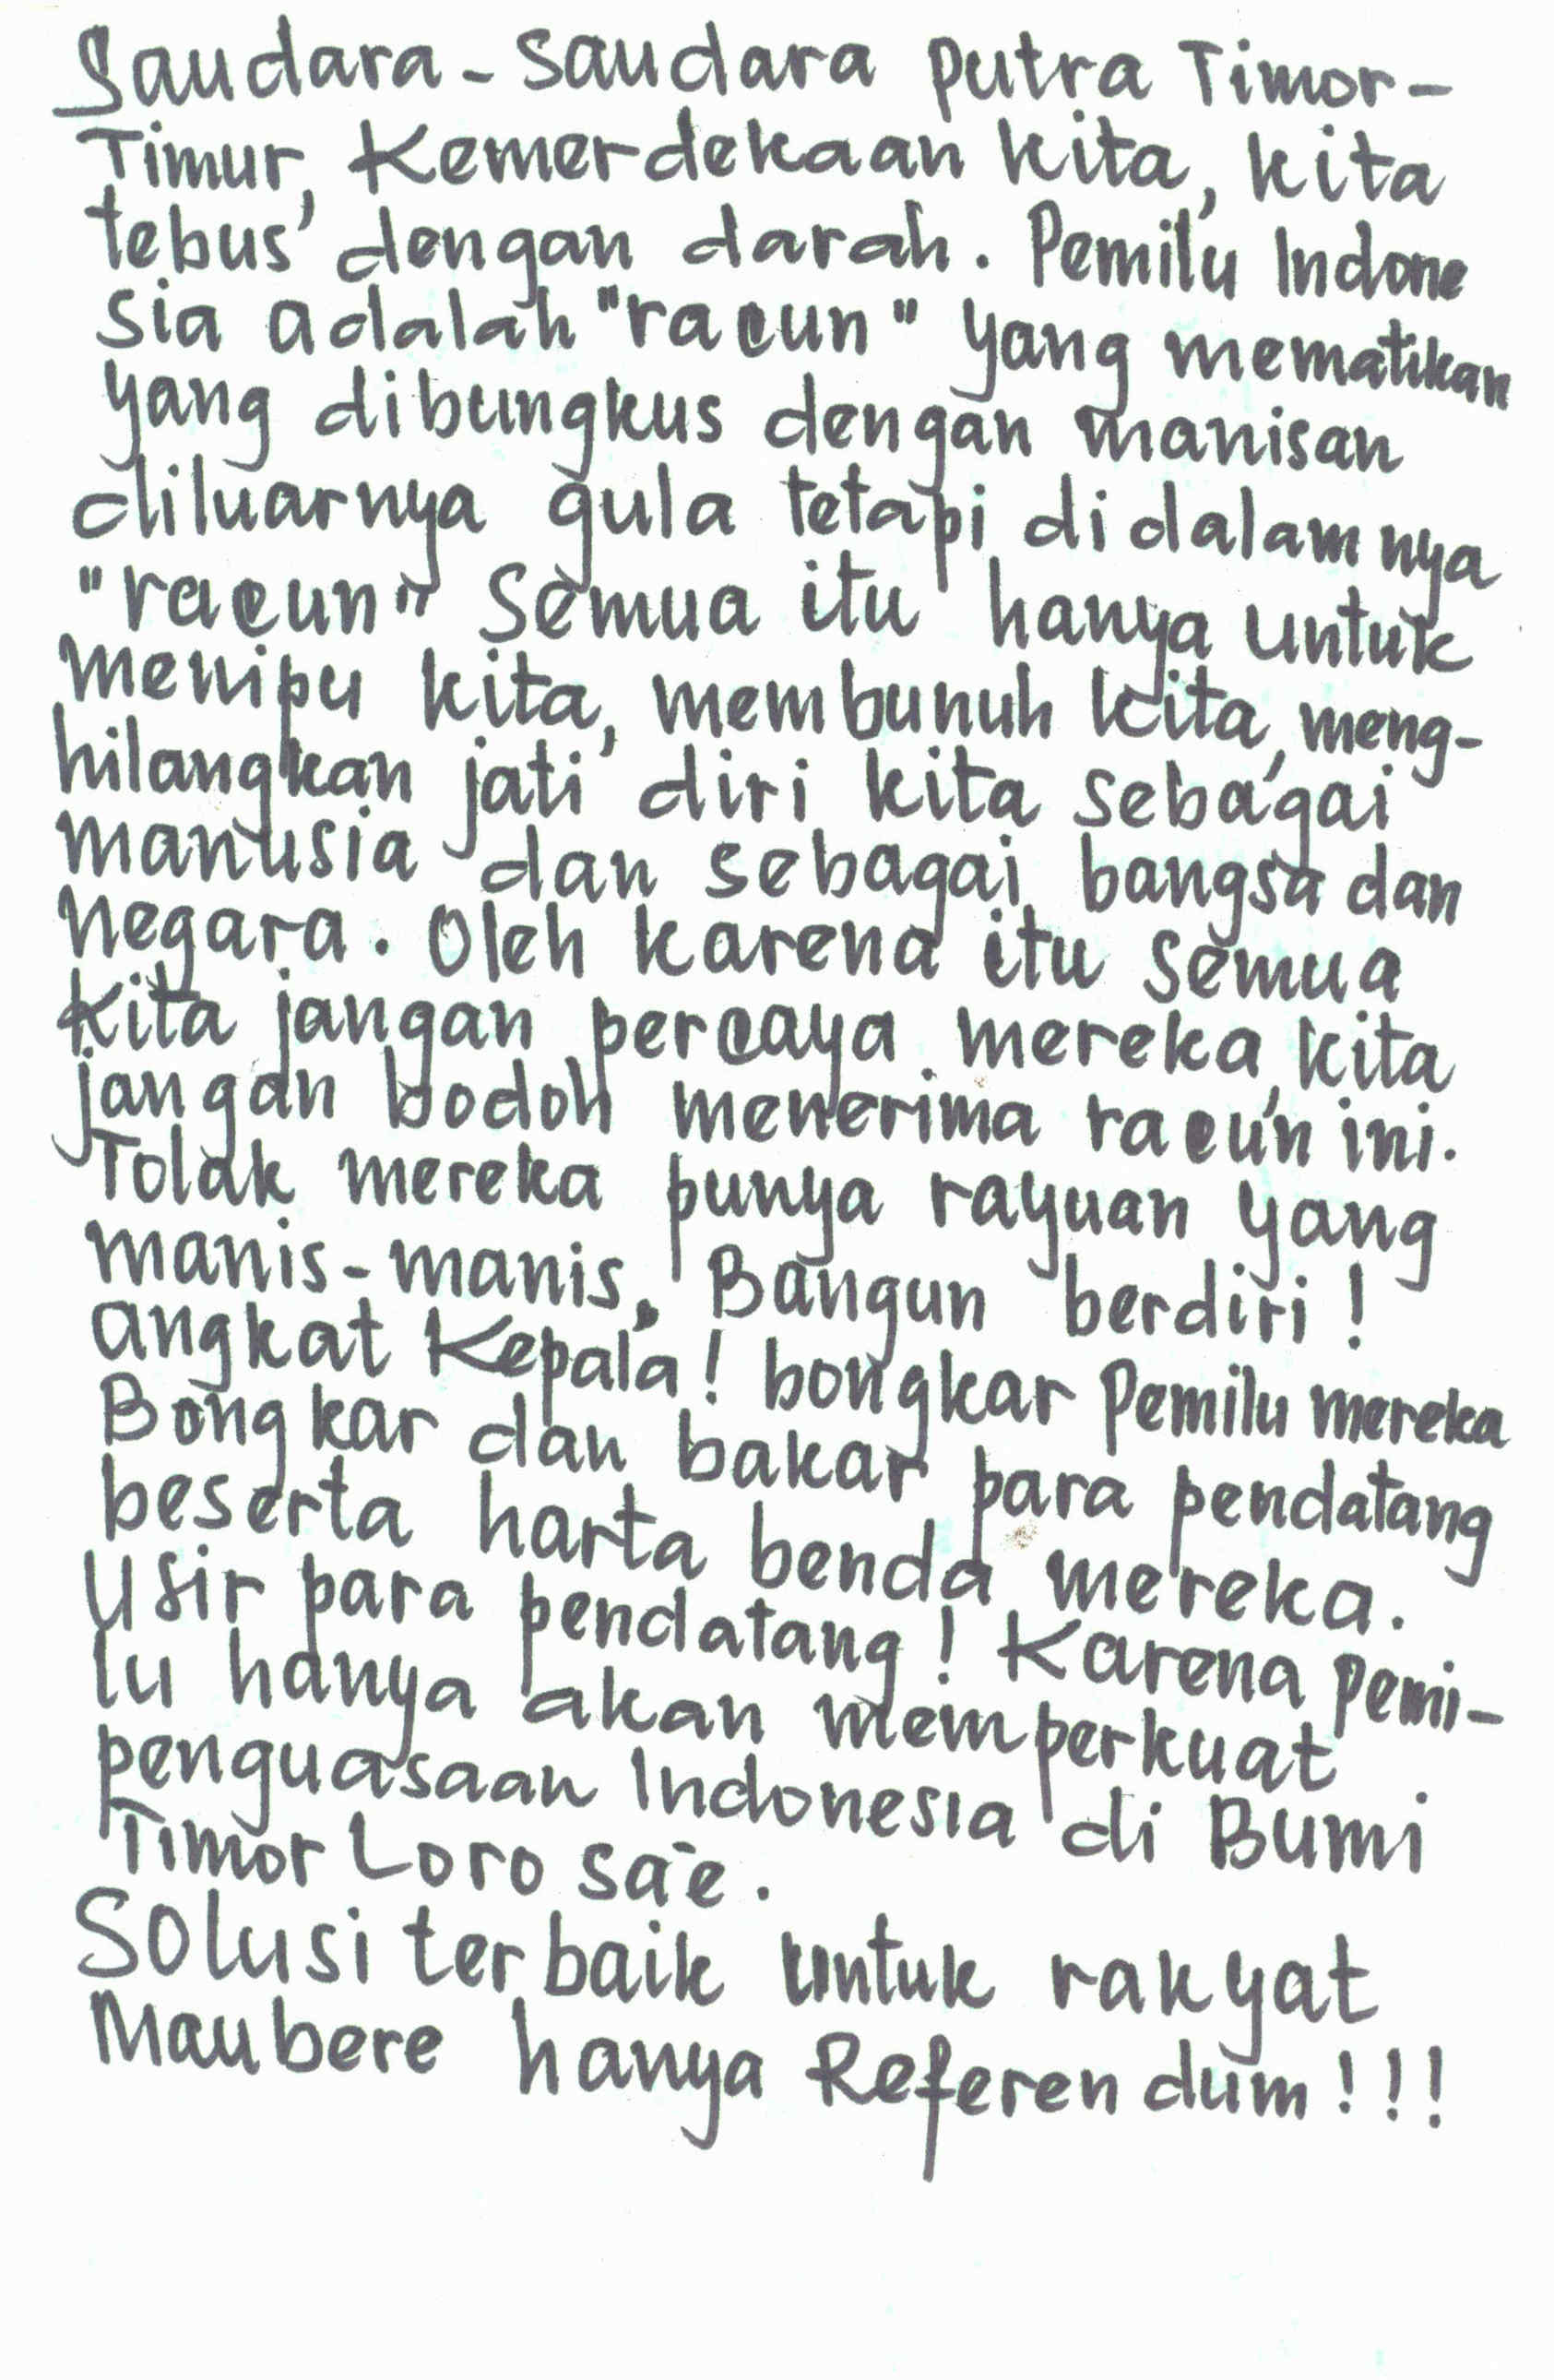 Saudara-saudara putra Timor-
Timur, Kemerdekaan kita, kita
tebus dengan darah. Pemilu Indone
sia adalah "racun" yang mematikan
yang dibungkus dengan manisan
diluarnya gula tetapi didalamnya
"racun" Semua itu hanya untuk
menipu kita, membunuh kita, meng-
hilangkan jati diri kita sebagai
manusia dan sebagai bangsa dan
negara. Oleh karena itu semua
kita jangan percaya mereka, kita
jangan bodoh menerima racun ini.
Tolak mereka punya rayuan yang
manis-manis. Bangun berdiri!
angkat Kepala! bongkar Pemilu mereka
Bongkar dan bakar para pendatang
beserta harta benda mereka.
Usir para pendatang! Karena pemi-
lu hanya akan memperkuat
penguasaan Indonesia di Bumi
Timor Loro sa'e.
Solusi terbaik untuk rakyat
Maubere hanya Referendum!!!